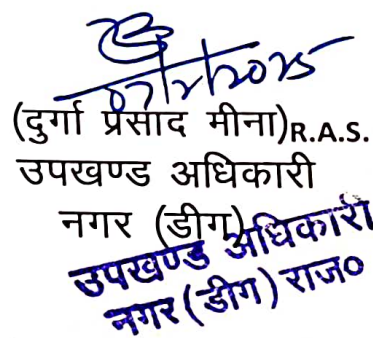 07/2/2025
(दुर्गा प्रसाद मीना)R.A.S.
उपखण्ड अधिकारी
नगर (डीग)
उपखण्ड अधिकारी
नगर (डीग) राज०